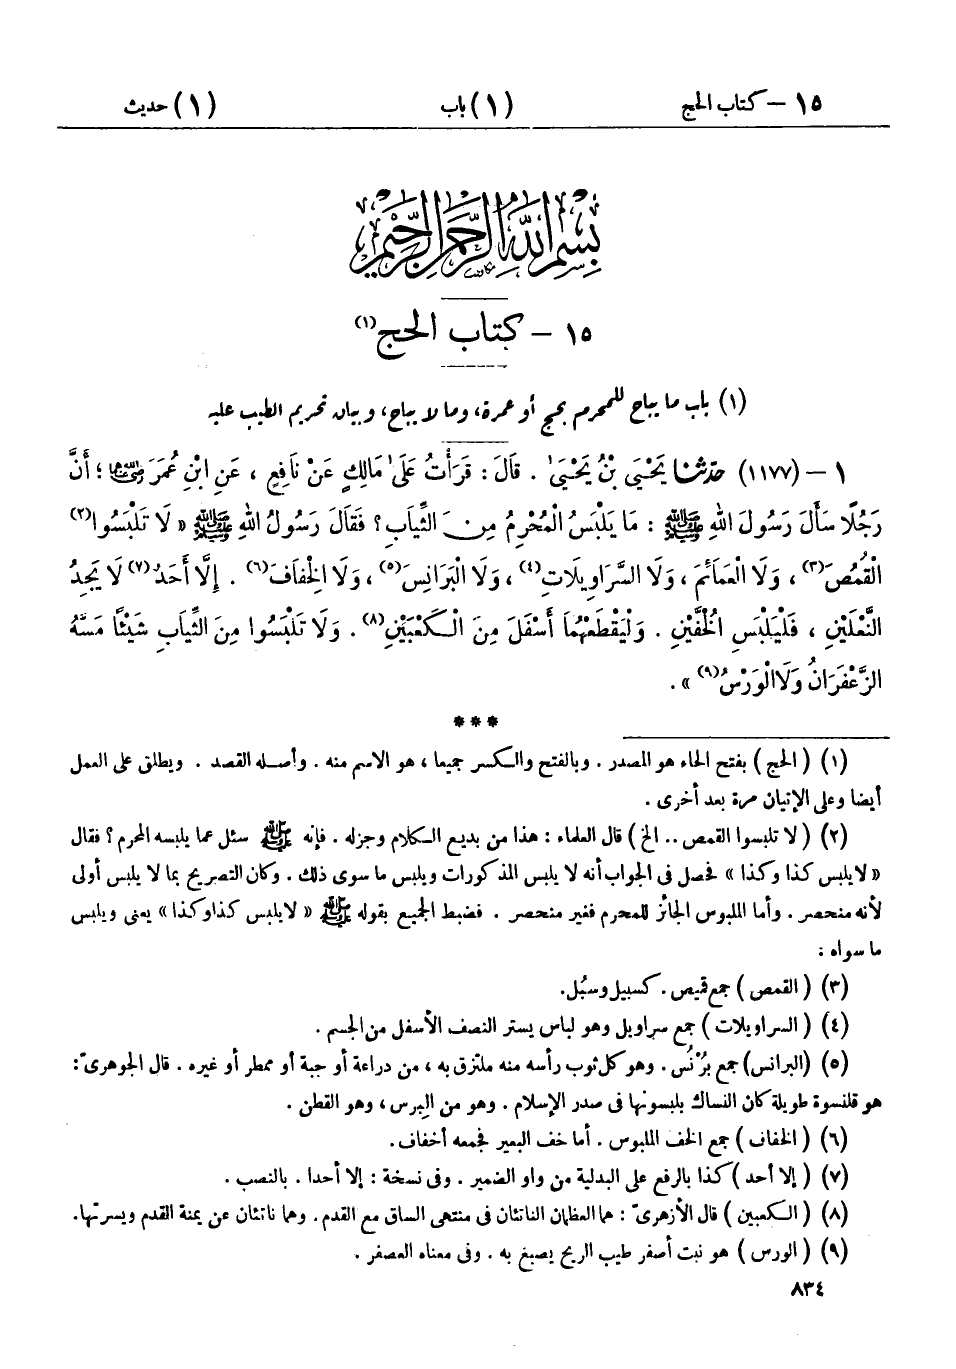 ١٥ – كتاب الحج (١) باب (١) حديث
بسم الله الرحمن الرحيم
١٥ – كتاب الحج(١)
(١) باب ما يباح للمحرم بحج أو عمرة، وما لا يباح، وبيان تحريم الطيب عليه
١ – (١١٧٧) حَدَّثَنَا يَحْيَى بْنُ يَحْيَىٰ . قَالَ : قَرَأْتُ عَلَىٰ مَالِكٍ عَنْ نَافِعٍ ، عَنِ ابْنِ عُمَرَ رضي الله عنهما ؛ أَنَّ
رَجُلًا سَأَلَ رَسُولَ اللهِ ﷺ : مَا يَلْبَسُ الْمُحْرِمُ مِنَ الثِّيَابِ ؟ فَقَالَ رَسُولُ اللهِ ﷺ « لَا تَلْبَسُوا(٢)
الْقُمُصَ(٣) ، وَلَا الْعَمَائِمَ ، وَلَا السَّرَاوِيلَاتِ(٤) ، وَلَا الْبَرَانِسَ(٥) ، وَلَا الْخِفَافَ(٦) . إِلَّا أَحَدٌ(٧) لَا يَجِدُ
النَّعْلَيْنِ ، فَلْيَلْبَسِ الْخُفَّيْنِ . وَلْيَقْطَعْهُمَا أَسْفَلَ مِنَ الْكَعْبَيْنِ(٨) . وَلَا تَلْبَسُوا مِنَ الثِّيَابِ شَيْئًا مَسَّهُ
الزَّعْفَرَانُ وَلَا الْوَرْسُ(٩) » .
***
(١) ( الحج ) بفتح الحاء هو المصدر . وبالفتح والكسر جميعا ، هو الاسم منه . وأصله القصد . ويطلق على العمل
أيضا وعلى الإتيان مرة بعد أخرى .
(٢) ( لا تلبسوا القمص .. الخ ) قال العلماء : هذا من بديع الكلام وجزله . فإنه ﷺ سئل عما يلبسه المحرم ؟ فقال
« لا يلبس كذا وكذا » فحصل في الجواب أنه لا يلبس المذكورات ويلبس ما سوى ذلك . وكان التصريح بما لا يلبس أولى
لأنه منحصر . وأما الملبوس الجائز للمحرم فغير منحصر . فضبط الجميع بقوله ﷺ « لا يلبس كذا وكذا » يعنى ويلبس
ما سواه :
(٣) ( القمص ) جمع قميص . كسبيل وسبُل.
(٤) ( السراويلات ) جمع سراويل وهو لباس يستر النصف الأسفل من الجسم .
(٥) (البرانس) جمع بُرْنُس . وهو كل ثوب رأسه منه ملتزق به ، من دراعة أو جبة أو ممطر أو غيره . قال الجوهرىّ :
هو قلنسوة طويلة كان النساك يلبسونها في صدر الإسلام . وهو من البرس ، وهو القطن .
(٦) ( الخفاف ) جمع الخف الملبوس . أما خف البعير فجمعه أخفاف.
(٧) ( إلا أحد ) كذا بالرفع على البدلية من واو الضمير . وفى نسخة : إلا أحدا . بالنصب .
(٨) ( الكعبين ) قال الأزهرىّ : هما العظمان الناتئان في منتهى الساق مع القدم . وهما ناتئان عن يمنة القدم ويسرتها.
(٩) ( الورس ) هو نبت أصفر طيب الريح يصبغ به . وفى معناه العصفر .
٨٣٤